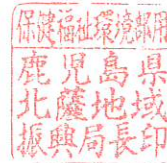 保健福祉環境部用
鹿児島県
北薩地域
振興局長印